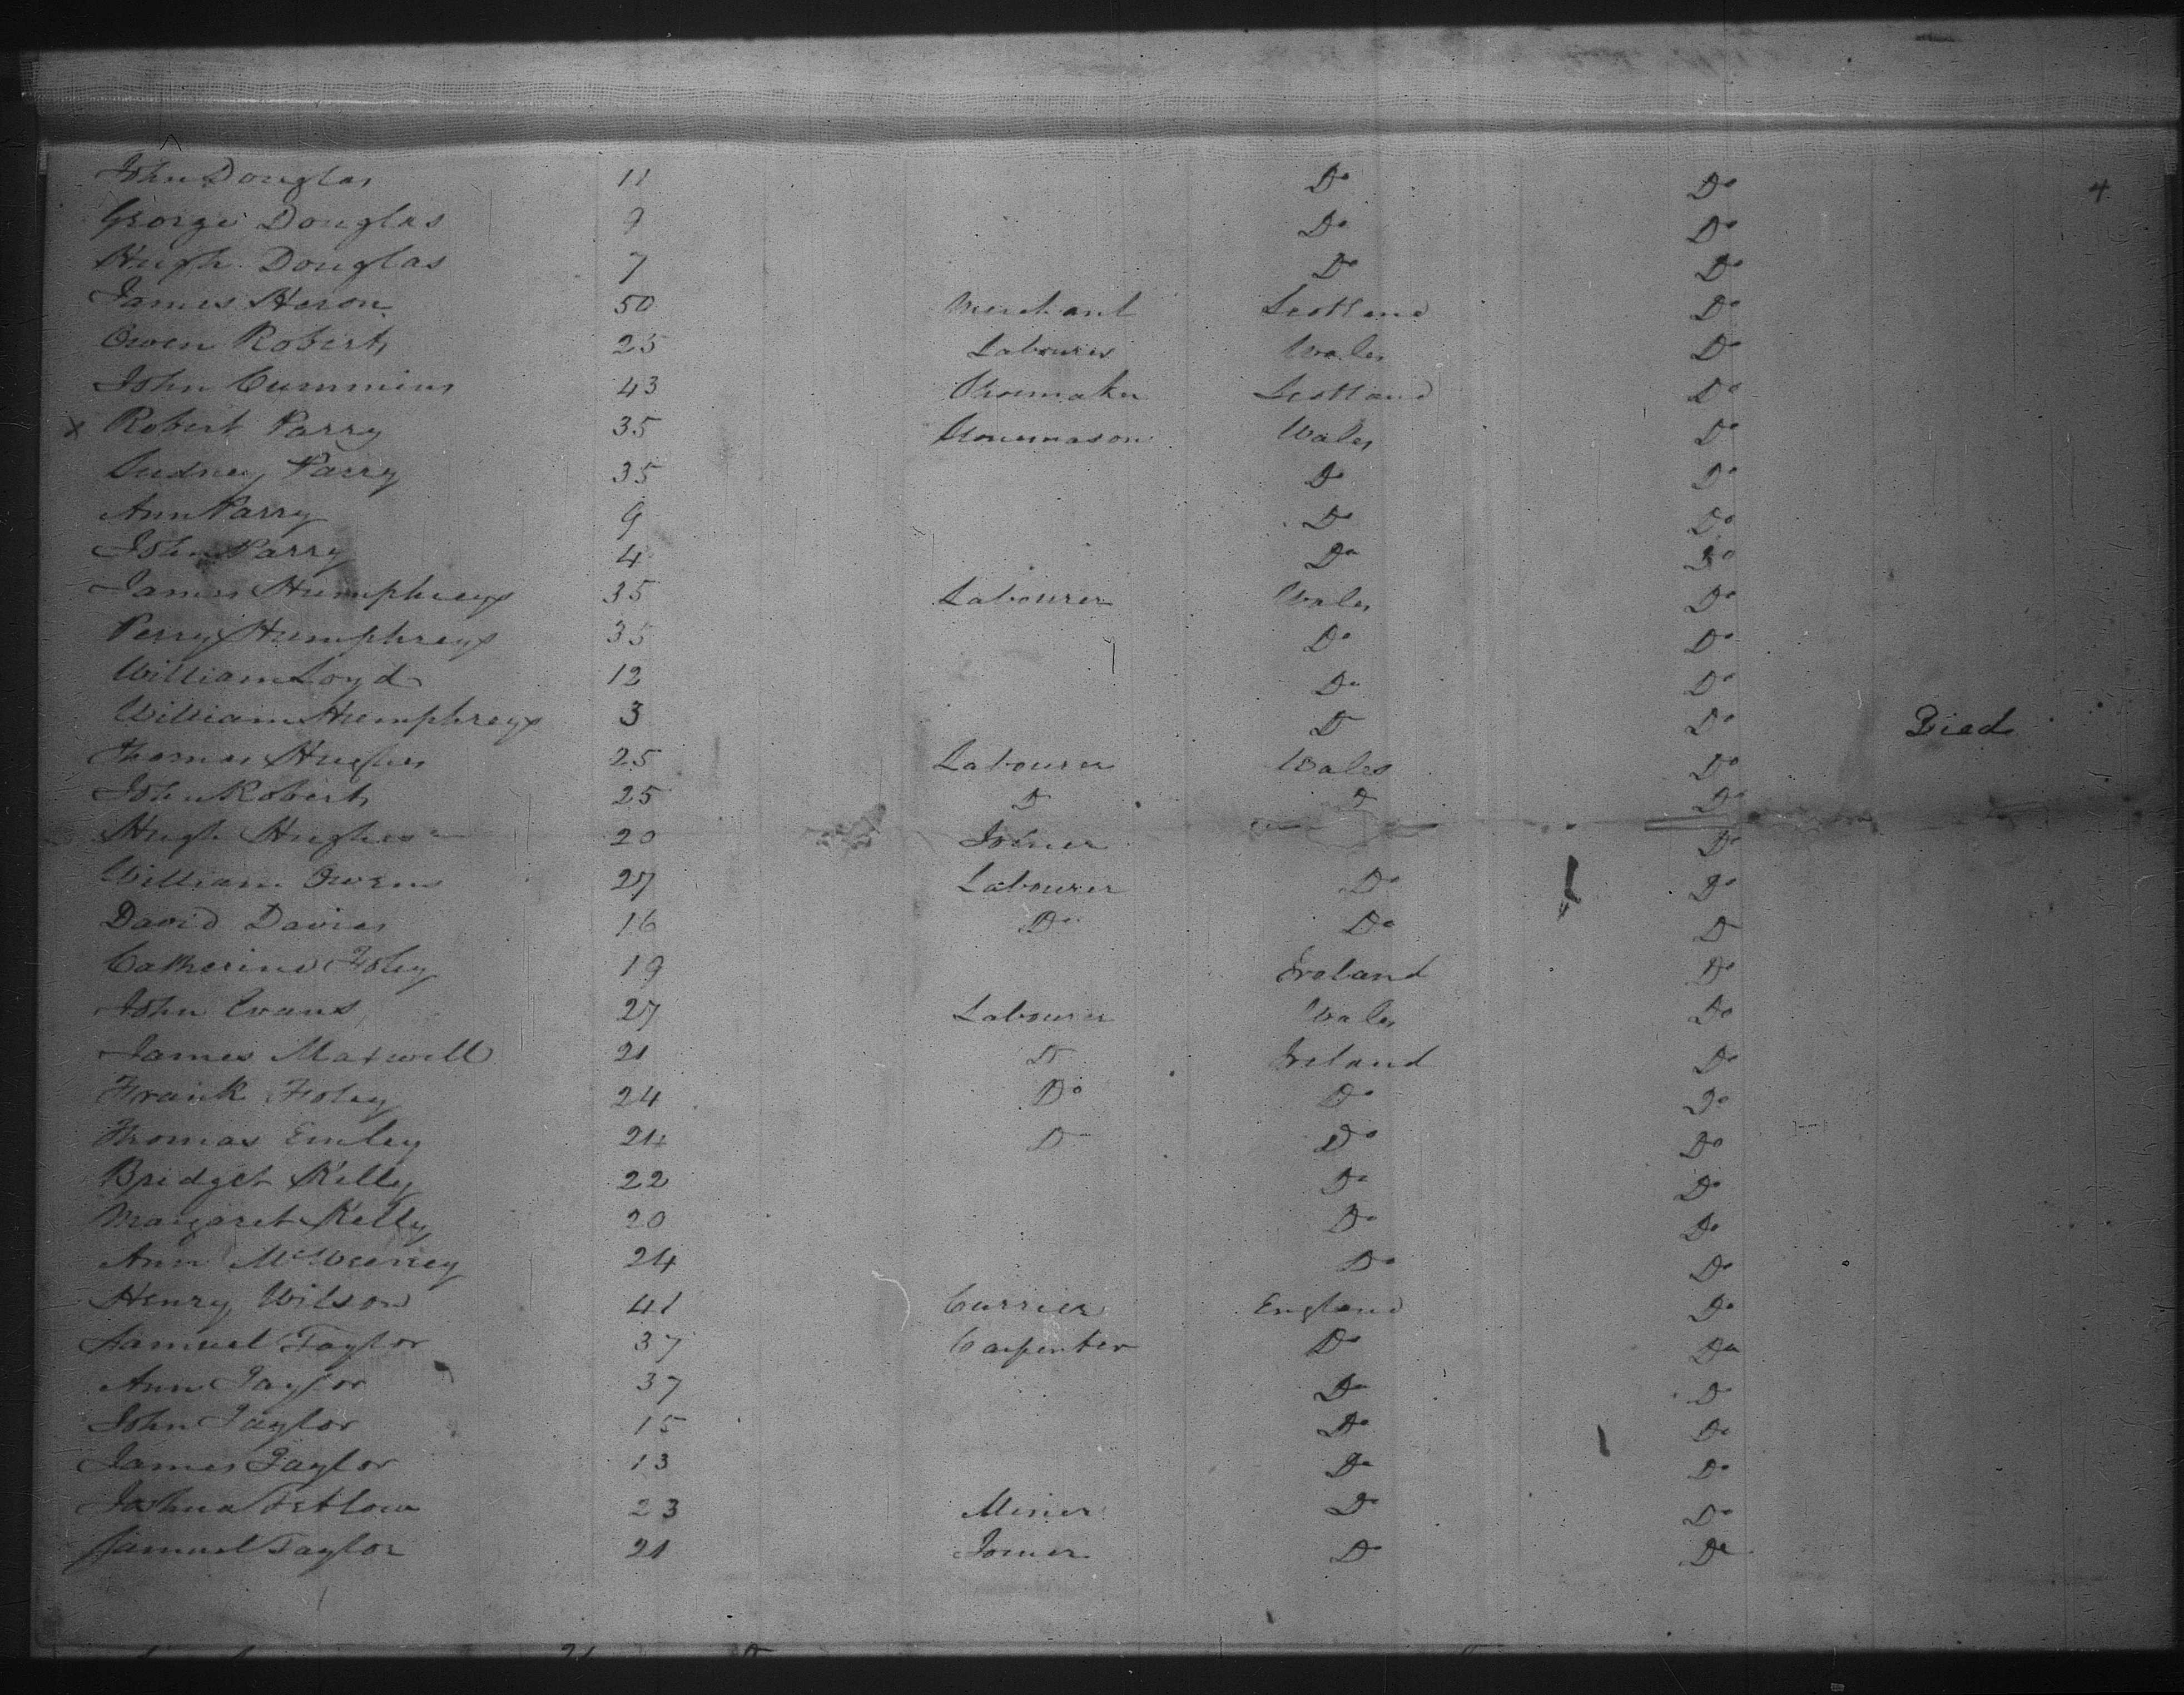 John Douglas 11 Do Do 4
George Douglas 9 Do Do
Hugh Douglas 7 Do Do
James Heron 50 Merchant Scotland Do
Owen Roberts 25 Labourer Wales Do
John Cummins 43 Shoemaker Scotland Do
x Robert Parry 35 Stonemason Wales Do
Sudney Parry 35 Do Do
Ann Parry 9 Do Do
John Parry 4 Do Do
James Humphreys 35 Labourer Wales Do
Perry Humphreys 35 Do Do
William Loyd 12 Do Do
William Humphreys 3 Do Do Died
Thomas Hughes 25 Labourer Wales Do
John Roberts 25 Do Do Do
Hugh Hughes 20 Joiner Do
William Owens 27 Labourer Do Do
David Davies 16 Do Do Do
Catherine Foley 19 Ireland Do
John Evans 27 Labourer Wales Do
James Maxwell 21 Do Ireland Do
Frank Foley 24 Do Do Do
Thomas Emley 24 Do Do Do
Bridget Kelly 22 Do Do
Margaret Kelly 20 Do Do
Ann 24 Do Do
Henry Wilson 41 Currier England Do
Samuel Taylor 37 Carpenter Do Do
Ann Taylor 37 Do Do
John Taylor 15 Do Do
James Taylor 13 Do Do
Joshua Tetlow 23 Miner Do Do
Samuel Taylor 21 Joiner Do Do